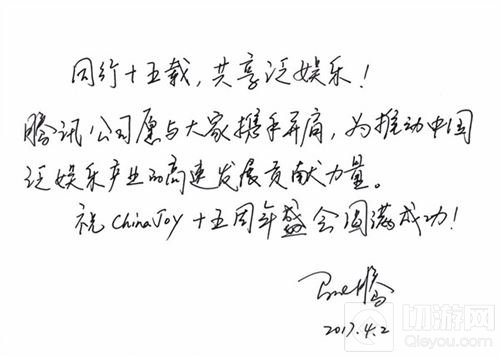 同行十五载，共享泛娱乐！
腾讯公司愿与大家携手并肩，为推动中国
泛娱乐产业的高速发展贡献力量。
祝ChinaJoy十五周年盛会圆满成功！
马化腾
2017.4.2
切游网
Qieyou.com